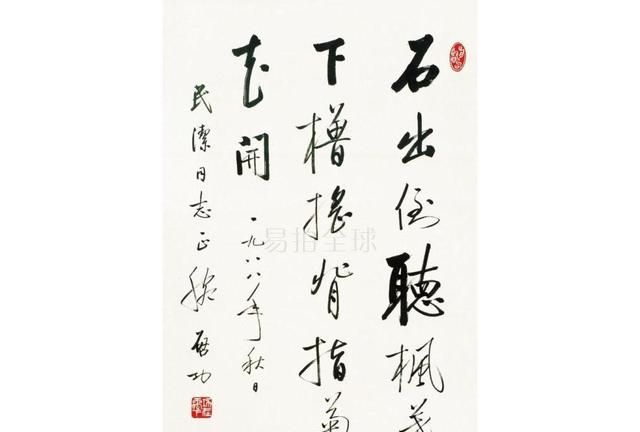 石出倒聽楓葉
下櫓搖背指菊
花開
一九八八年秋日
民潔同志正腕 啓功
易拍全球